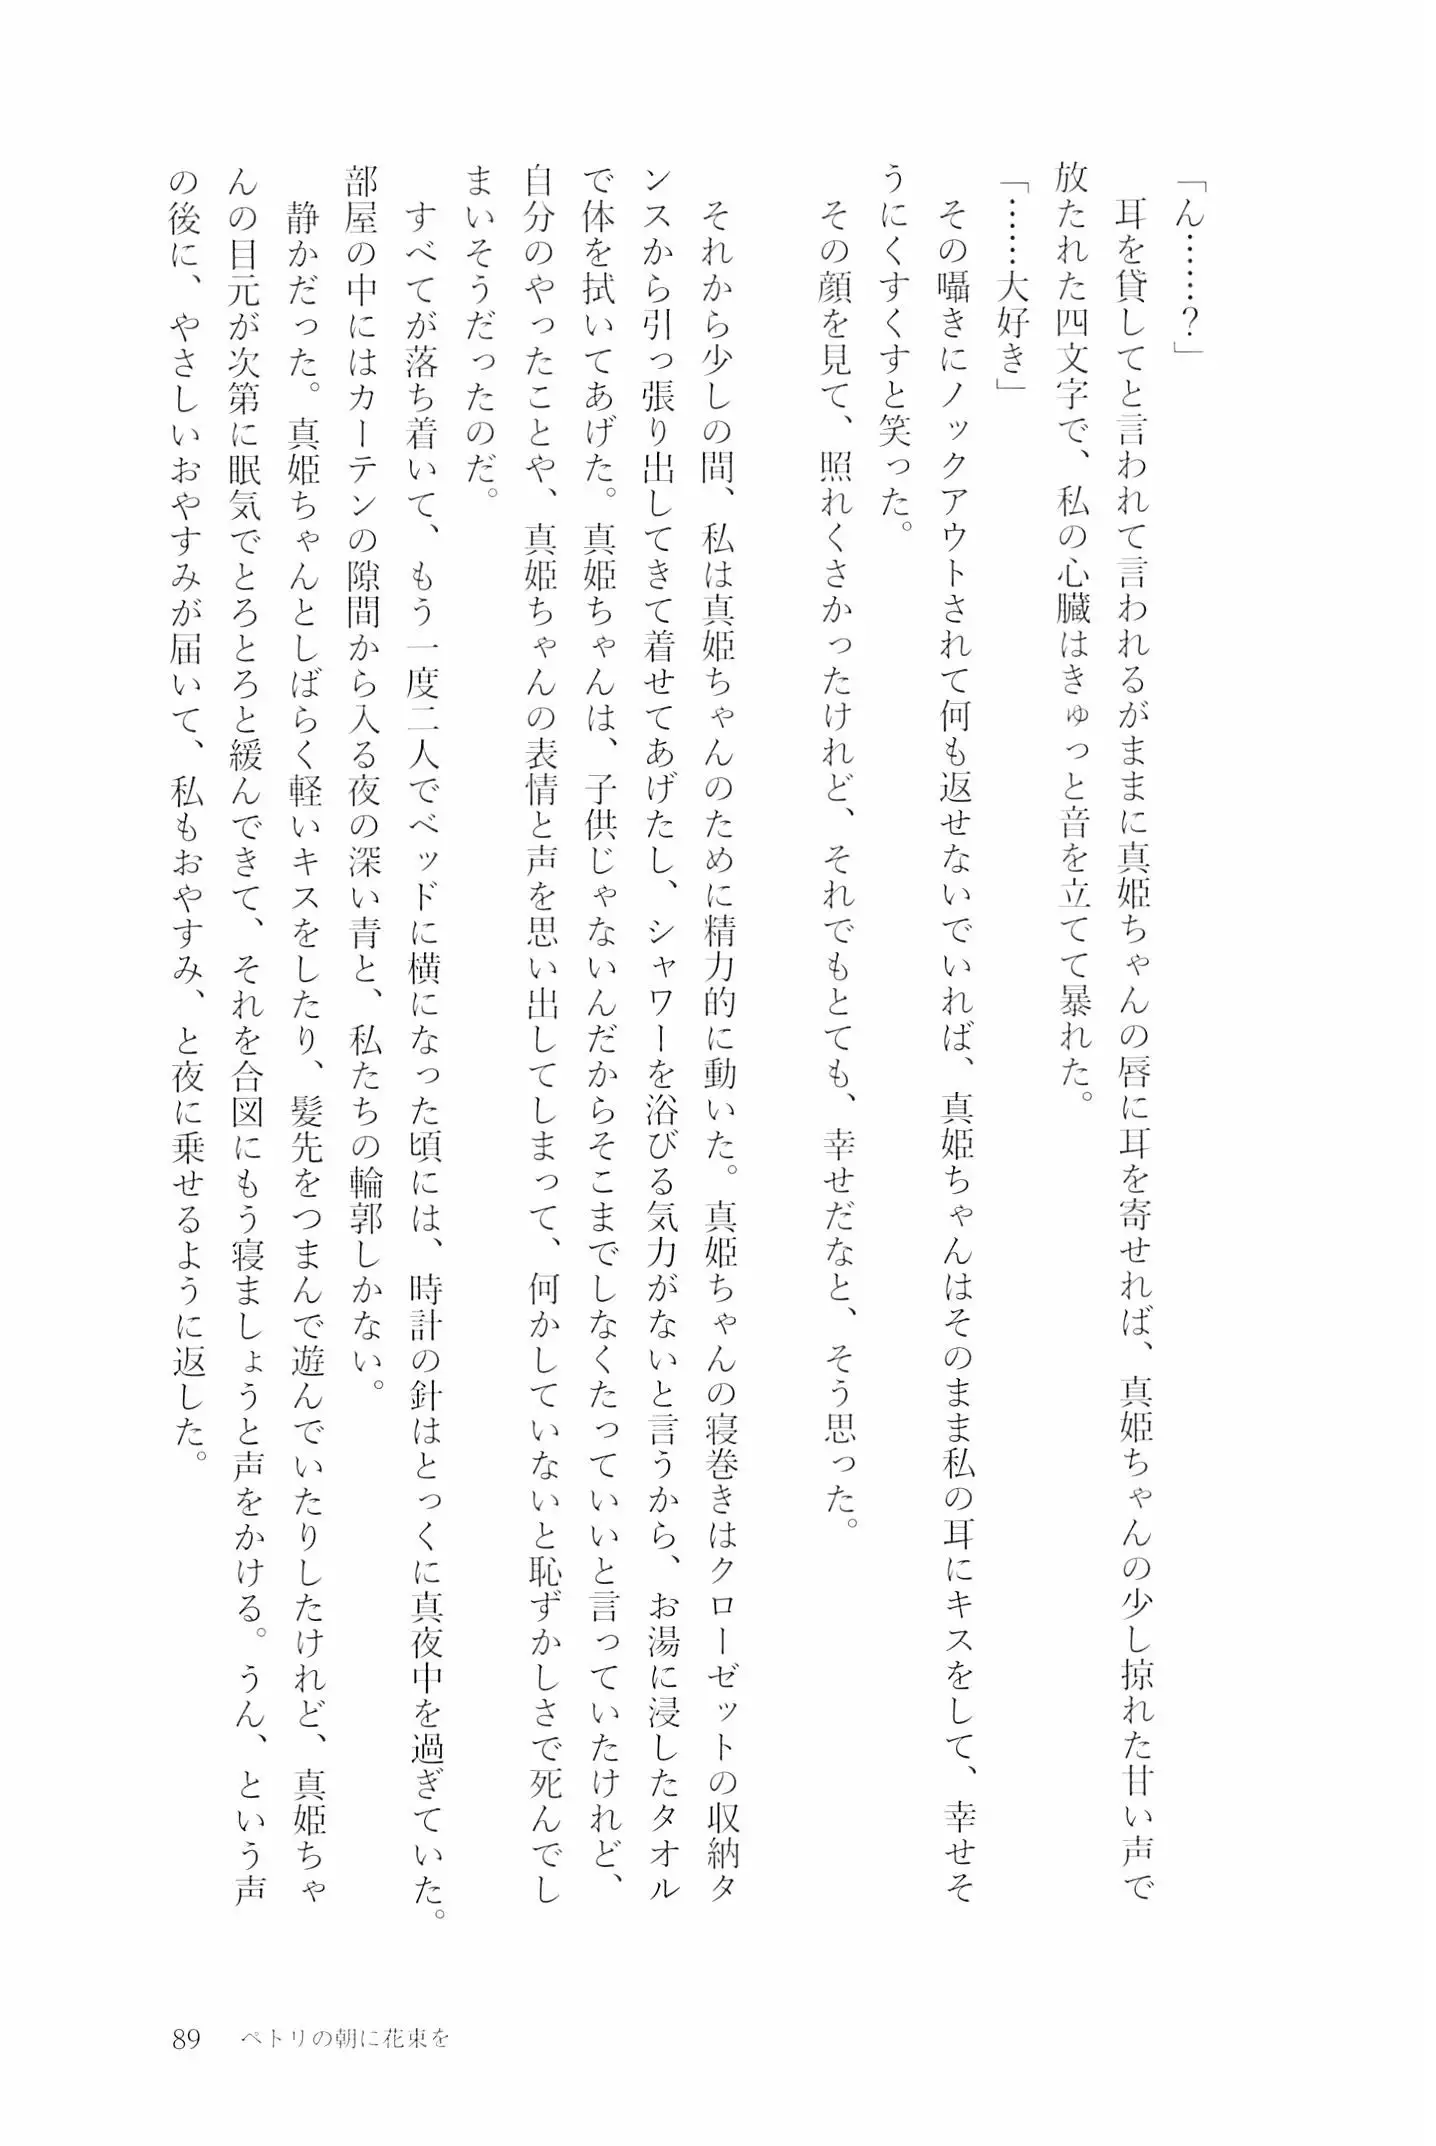 「ん……？」
　耳を貸してと言われて言われるがままに真姫ちゃんの唇に耳を寄せれば、真姫ちゃんの少し掠れた甘い声で
放たれた四文字で、私の心臓はきゅっと音を立てて暴れた。
「……大好き」
　その囁きにノックアウトされて何も返せないでいれば、真姫ちゃんはそのまま私の耳にキスをして、幸せそ
うにくすくすと笑った。
　その顔を見て、照れくさかったけれど、それでもとても、幸せだなと、そう思った。
　それから少しの間、私は真姫ちゃんのために精力的に動いた。真姫ちゃんの寝巻きはクローゼットの収納タ
ンスから引っ張り出してきて着せてあげたし、シャワーを浴びる気力がないと言うから、お湯に浸したタオル
で体を拭いてあげた。真姫ちゃんは、子供じゃないんだからそこまでしなくたっていいと言っていたけれど、
自分のやったことや、真姫ちゃんの表情と声を思い出してしまって、何かしていないと恥ずかしさで死んでし
まいそうだったのだ。
　すべてが落ち着いて、もう一度二人でベッドに横になった頃には、時計の針はとっくに真夜中を過ぎていた。
部屋の中にはカーテンの隙間から入る夜の深い青と、私たちの輪郭しかない。
　静かだった。真姫ちゃんとしばらく軽いキスをしたり、髪先をつまんで遊んでいたりしたけれど、真姫ちゃ
んの目元が次第に眠気でとろとろと緩んできて、それを合図にもう寝ましょうと声をかける。うん、という声
の後に、やさしいおやすみが届いて、私もおやすみ、と夜に乗せるように返した。
89　ペトリの朝に花束を